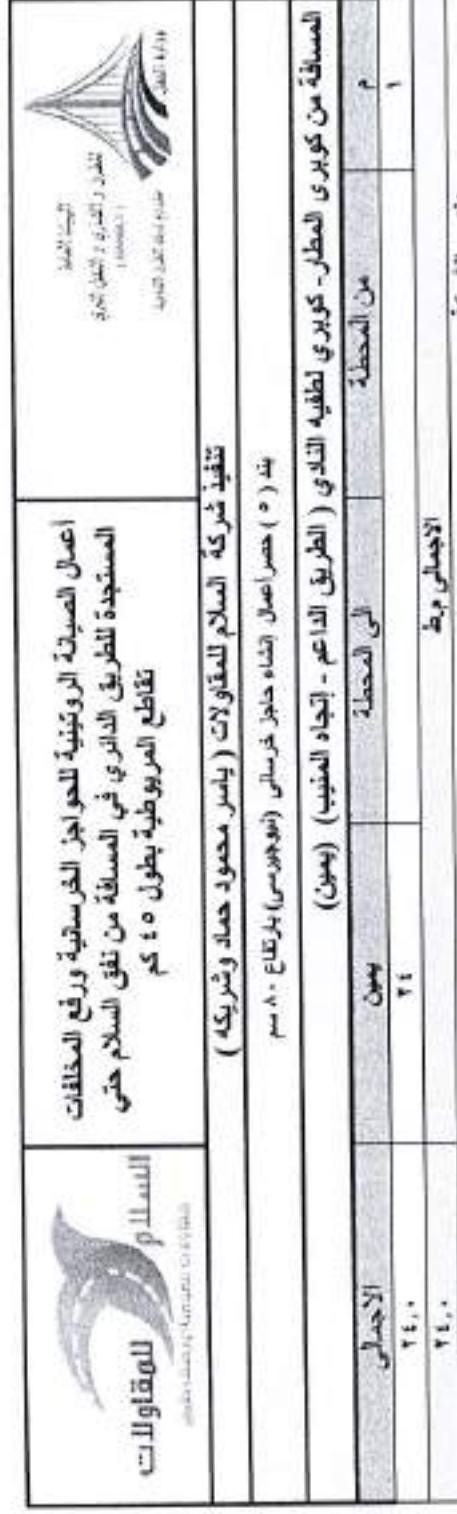 وزارة النقل
الهيئة العامة
للطرق و الكبارى و النقل البرى
أعمال الصيانة الروتينية للحواجز الخرسانية ورفع المخلفات
المستجدة للطريق الدائري في المسافة من نفق السلام حتي
تقاطع المريوطية بطول ٤٥ كم
السلام
للمقاولات
تنفيذ شركة السلام للمقاولات ( ياسر محمود حماد وشريكه )
بند ( ٥ ) حصر اعمال إنشاء حاجز خرسانى (نيوجيرسى) بارتفاع ٨٠ سم
المسافة من كوبرى المطار - كوبري لطفيه النادي ( الطريق الداعم - إتجاه المنيب) (يمين)
م من المحطة الى المحطة يمين الاجمالى
١ ٢٤ ٢٤,٠
الاجمالى م.ط ٢٤,٠